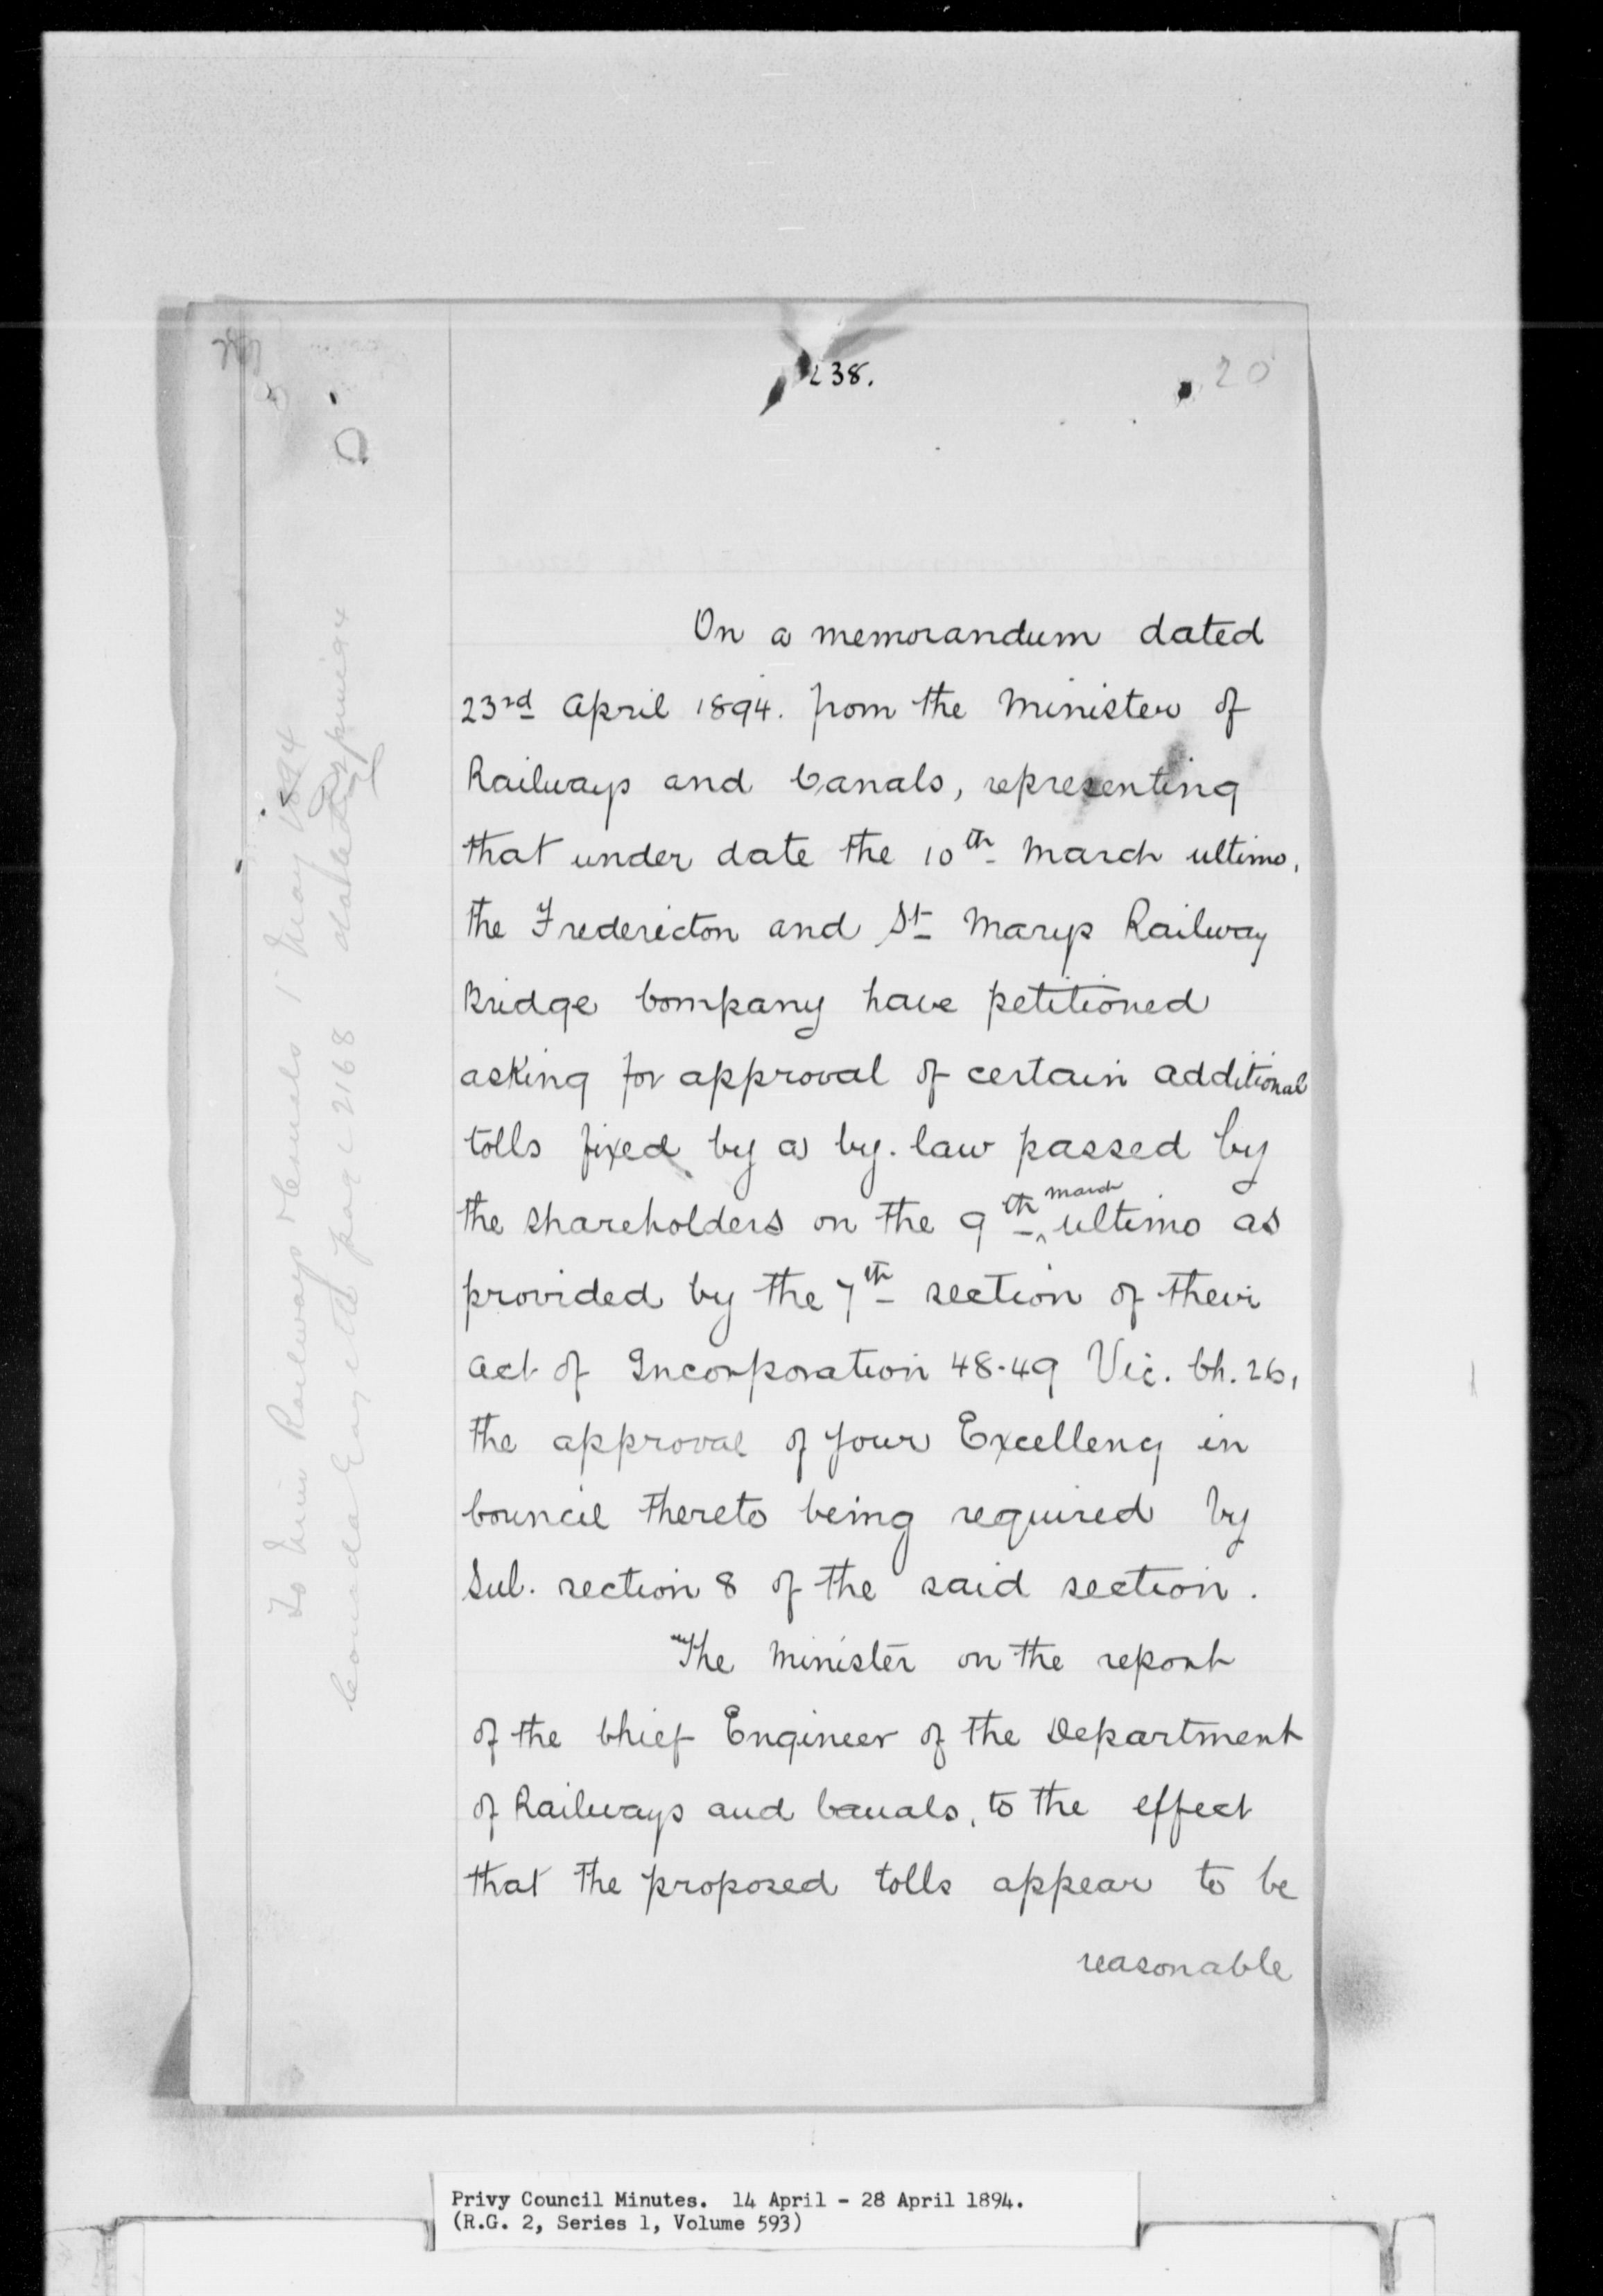 238.
20
On a memorandum dated
23rd April 1894. from the Minister of
Railways and Canals, representing
that under date the 10th March ultimo,
the Fredericton and St Marys Railway
Bridge Company have petitioned
asking for approval of certain additional
tolls fixed by a by. law passed by
the shareholders on the 9th March ultimo as
provided by the 7th section of their
Act of Incorporation 48-49 Vic. Ch. 26,
the approval of Your Excellency in
Council thereto being required by
Sub. section 8 of the said section.
The Minister on the report
of the Chief Engineer of the Department
of Railways and Canals, to the effect
that the proposed tolls appear to be
reasonable
To Min Railways & Canals 1 May 1894
Canada Gazette page 2168 dated
Privy Council Minutes. 14 April - 28 April 1894.
(R.G. 2, Series 1, Volume 593)